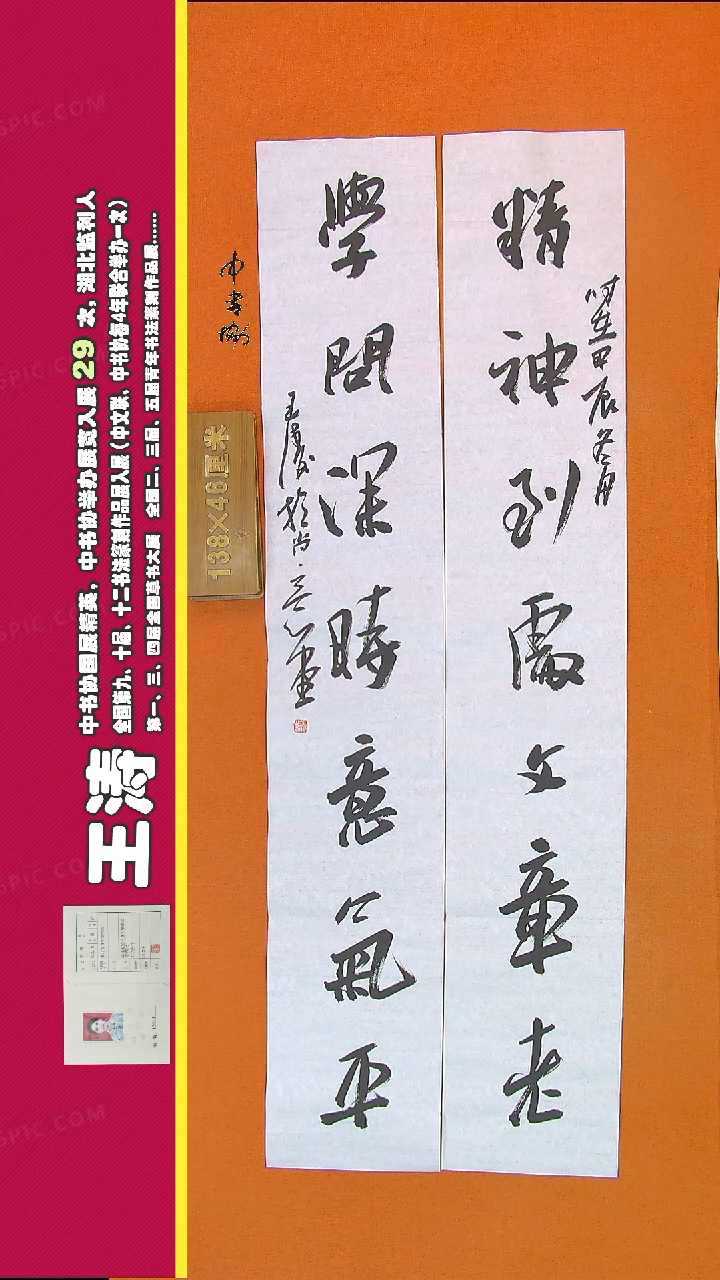 精神到處文章老
時在甲辰冬月
學問深時意氣平
王濤於尚意心画
中書協
138×46厘米
中书协国展精英，中书协举办展览入展 29 次，湖北监利人
全国第九、十届、十二书法篆刻作品展入展（中文联、中书协每4年联合举办一次）
第一、三、四届全国草书大展 全国二、三届、五届青年书法篆刻作品展……
王涛